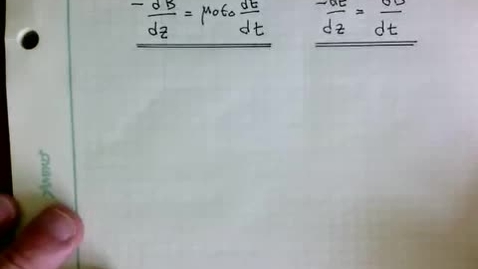 -dB/dz = μ₀ε₀ dE/dt   -dE/dz = dB/dt